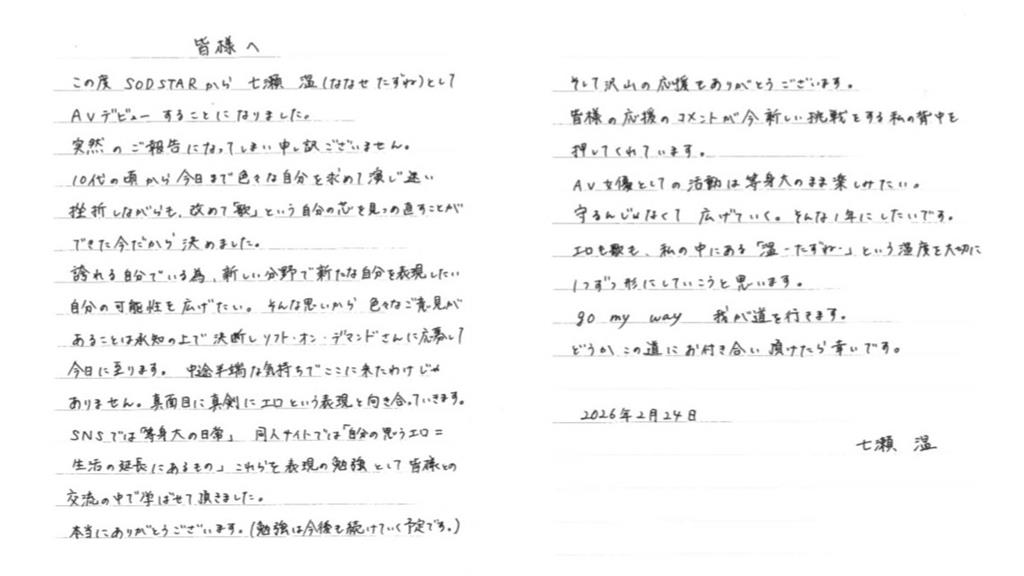 皆様へ
この度 SODSTARから 七瀬 温(ななせ たずね)として
AVデビューすることになりました。
突然のご報告になってしまい申し訳ございません。
10代の頃から今日まで色々な自分を求めて演じ迷い
挫折しながらも、改めて「歌」という自分の芯を見つめ直すことが
できた今だから決めました。
誇れる自分でいる為、新しい分野で新たな自分を表現したい
自分の可能性を広げたい。そんな思いから 色々なご意見が
あることは承知の上で決断しソフト・オン・デマンドさんに応募して
今日に至ります。 中途半端な気持ちでここに来たわけじゃ
ありません。真面目に真剣にエロという表現と向き合っていきます。
SNSでは「等身大の日常」 同人サイトでは「自分の思うエロ=
生活の延長にあるもの」これらを表現の勉強として皆様との
交流の中で学ばせて頂きました。
本当にありがとうございます。(勉強は今後も続けていく予定です。)
そして沢山の応援もありがとうございます。
皆様の応援のコメントが今新しい挑戦をする私の背中を
押してくれています。
AV女優としての活動は等身大のまま楽しみたい。
守るんじゃなくて 広げていく。そんな1年にしたいです。
エロも歌も、私の中にある「温-たずね-」という温度を大切に
1つずつ形にしていこうと思います。
go my way 我が道を行きます。
どうかこの道にお付き合い頂けたら幸いです。
2026年2月24日
七瀬 温